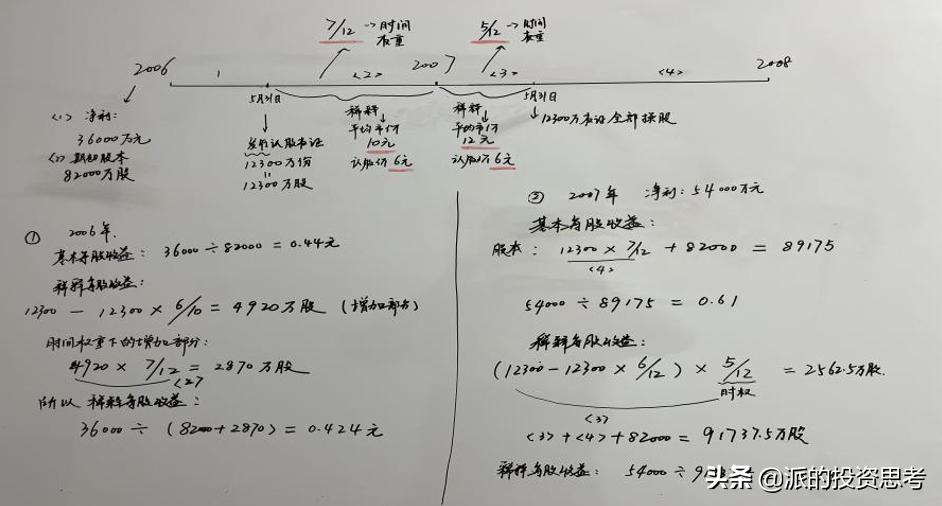 7/12 → 时间权重
5/12 → 时间权重
2006
1
<2>
2007
<3>
<4>
2008
5月31日
5月31日
<1> 净利:
36000万元
<2> 期初股本
82000万股
发行认股权证
12300万份
=
12300万股
稀释
平均市价
10元
认股价6元
稀释
平均市价
12元
认股价6元
12300万权证全部换股
① 2006年.
基本每股收益: 36000÷82000 = 0.44元
稀释每股收益:
12300 - 12300 × 6/10 = 4920万股 (增加部分)
时间权重下的增加部分:
4920 × 7/12 = 2870万股
<2>
所以稀释每股收益:
36000 ÷ (8200+2870) = 0.424元
② 2007年 净利: 54000万元
基本每股收益:
股本: 12300 × 7/12 + 82000 = 89175
<4>
54000 ÷ 89175 = 0.61
稀释每股收益:
(12300-12300 × 6/12) × 5/12 = 2562.5万股.
时权
<3>
<3>+<4>+82000 = 91737.5万股
稀释每股收益: 54000 ÷
头条 @派的投资思考